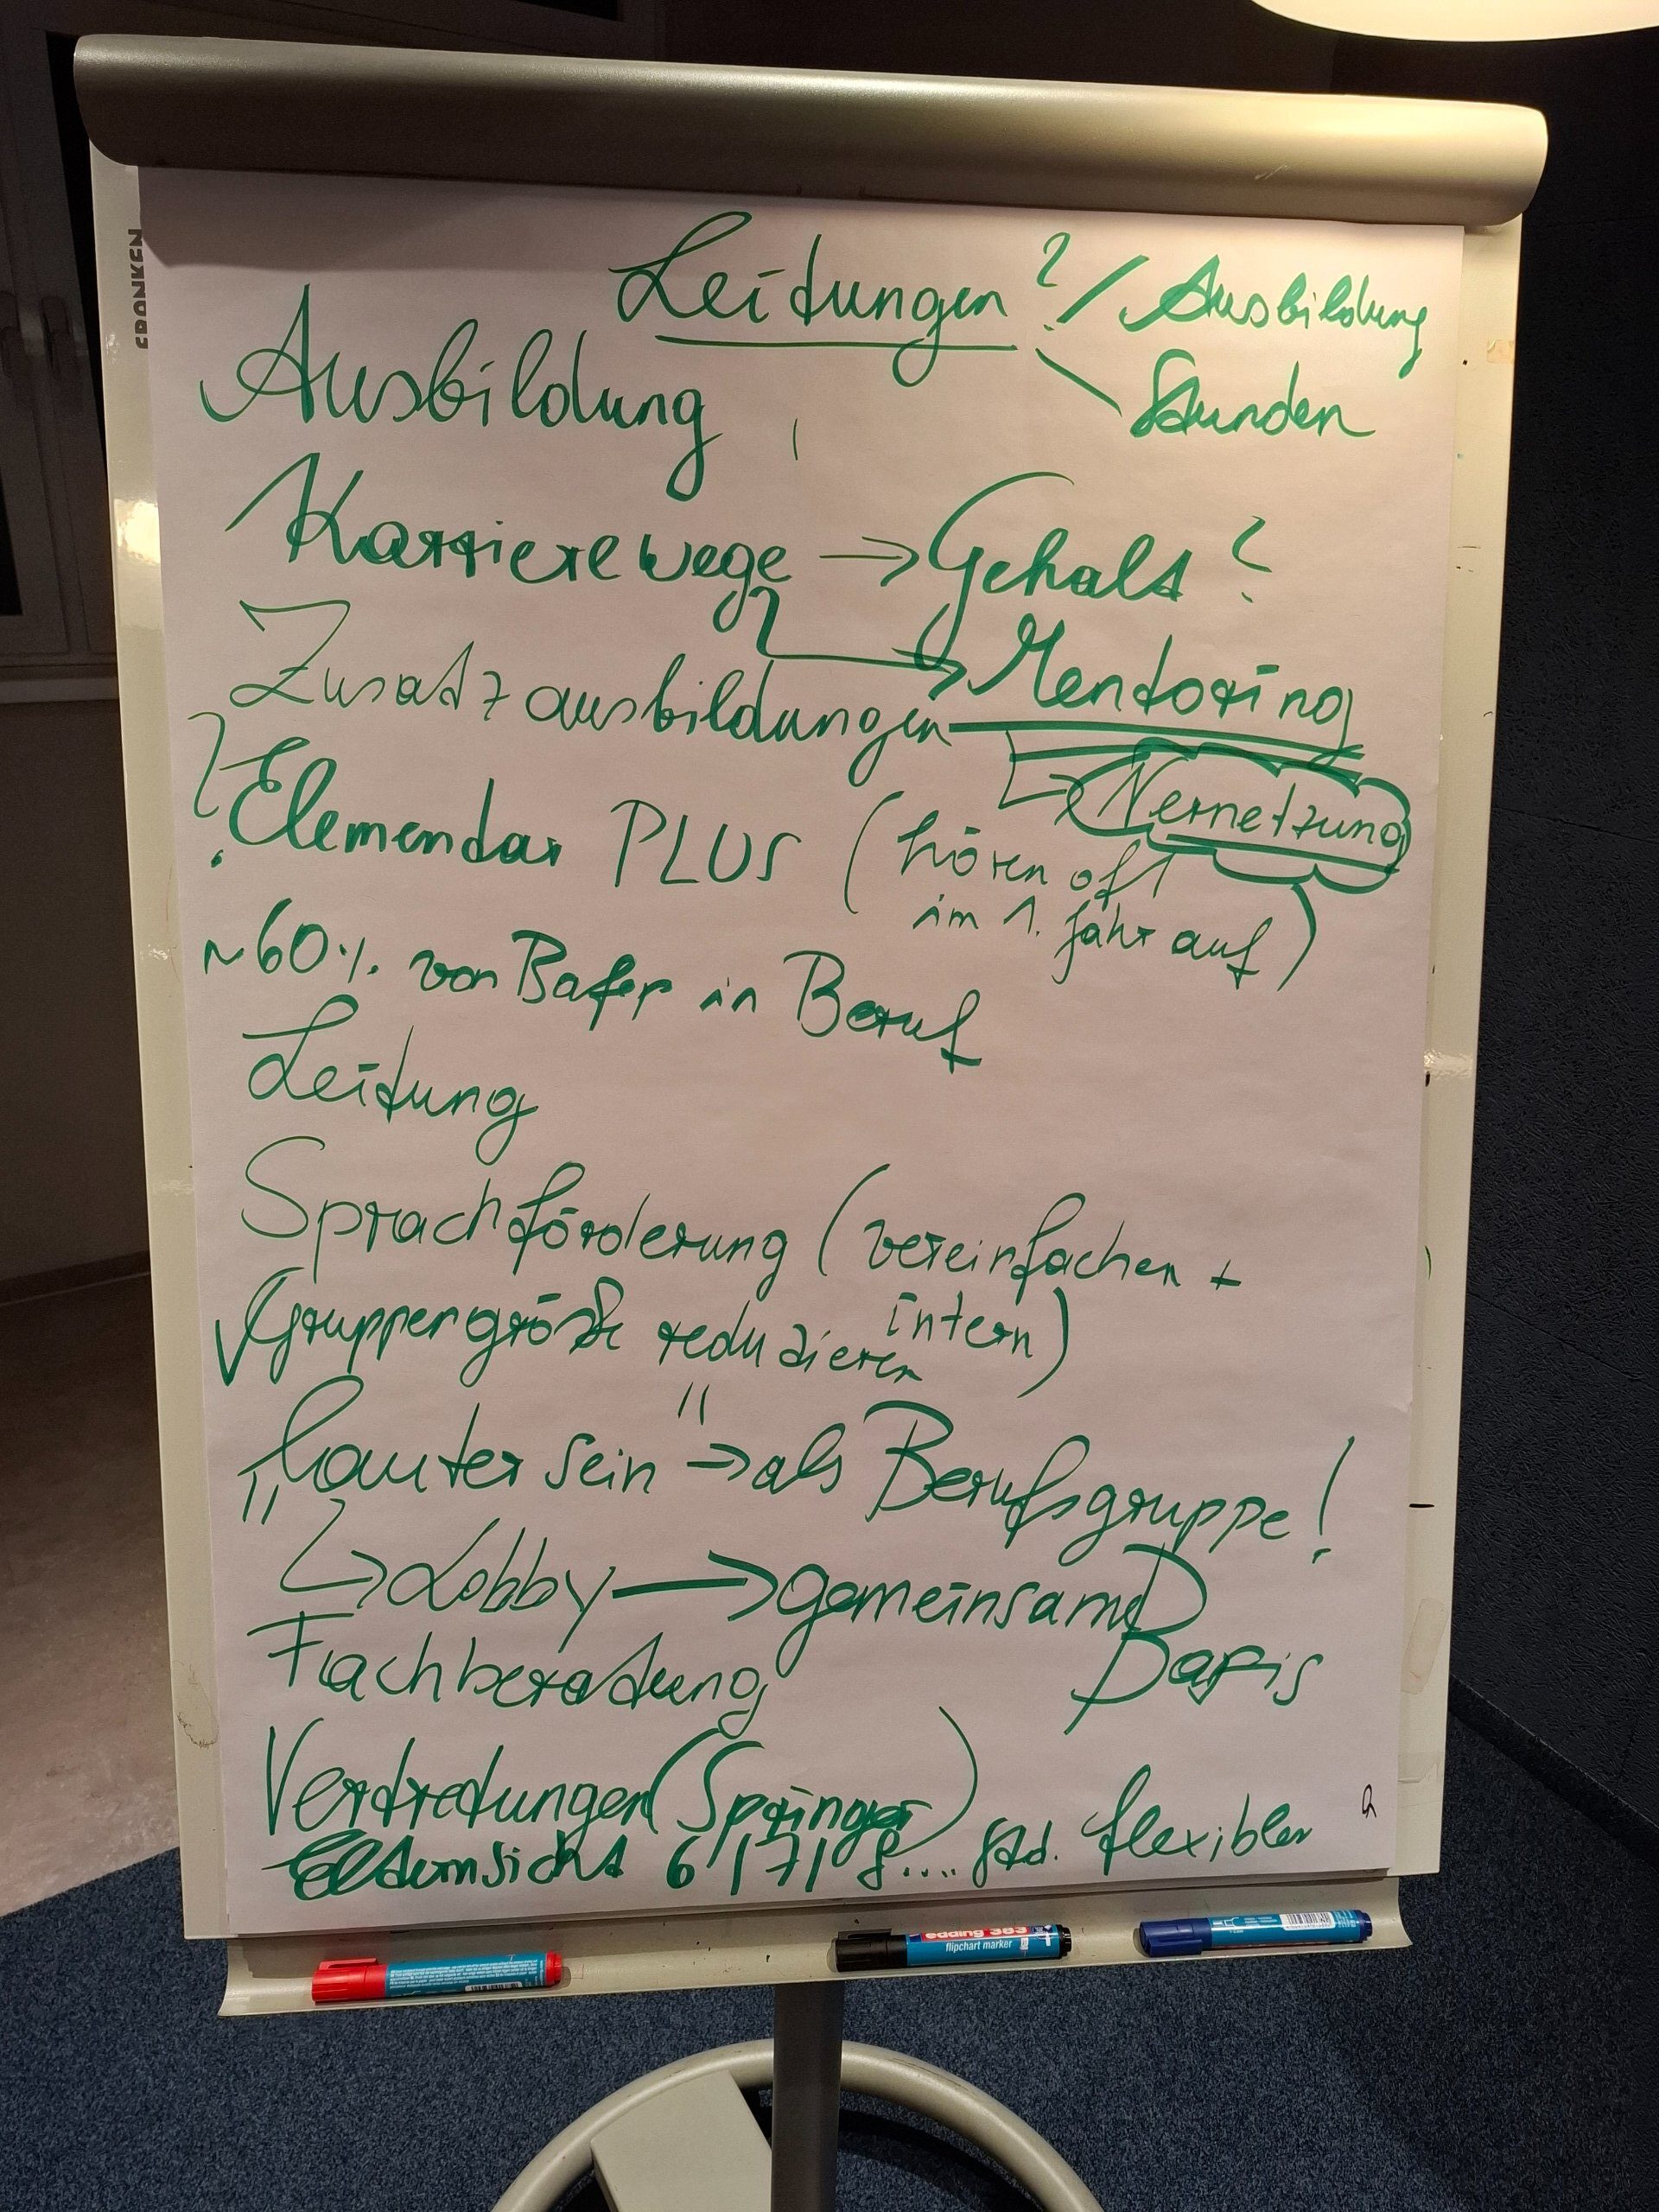 FRANKEN
Leitungen ? / Ausbildung
Stunden
Ausbildung
Karrierewege → Gehalt ?
→ Mentoring
Zusatzausbildungen
→ Vernetzung
? Elementar PLUS (hören oft
im 1. Jahr auf)
~60% von Bafep in Beruf
Leitung
Sprachförderung (vereinfachen +
intern)
√ Gruppengröße reduzieren
"lauter sein" → als Berufsgruppe!
↳ Lobby → gemeinsam
Basis
Fachberatung
Vertretungen (Springer)
Elternsicht 6/7/8.... Std. flexibler
edding 383
flipchart marker